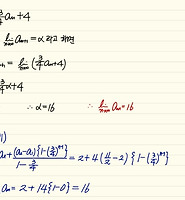 3/4 aₙ+4
lim n→∞ aₙ₊₁ = α 라고 하면
ₙ₊₁ = lim n→∞ (3/4 aₙ+4)
3/4 α+4
∴ α=16 ∴ lim n→∞ aₙ=16
)
aₙ + (a₂-a₁){1-(3/4)ⁿ⁻¹} / 1-3/4 = 2+4(11/2-2){1-(3/4)ⁿ⁻¹}
aₙ = 2+14{1-0}=16